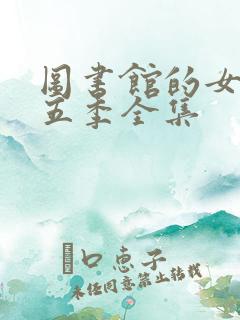 圖書館的女
五季全集
口惠子
未经同意禁止转载